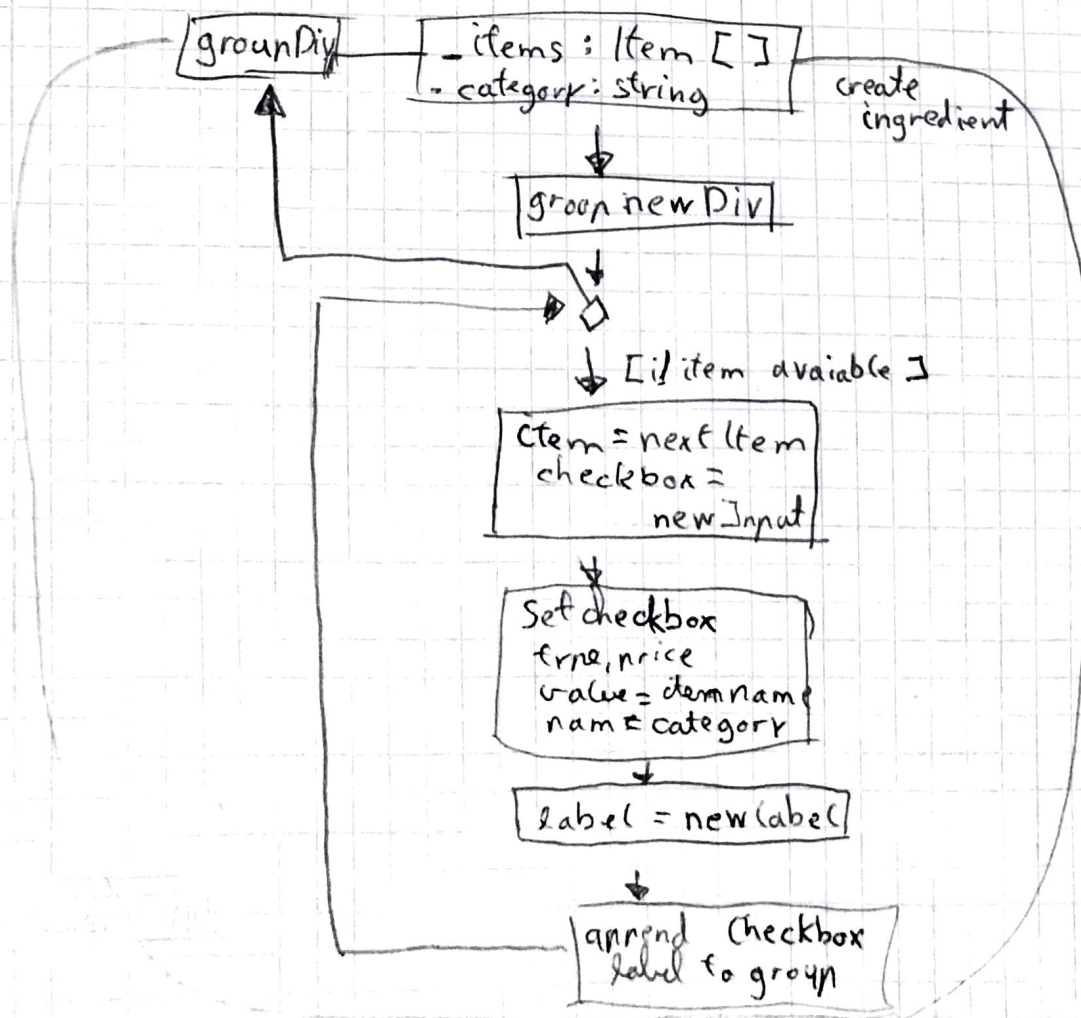 groupDiv
_items : Item [ ]
- category: string
create
ingredient
group new Div
[if item avaiable ]
item = next Item
checkbox =
new Input
Set checkbox
type, price
value = item name
name = category
label = new label
append checkbox
label to group